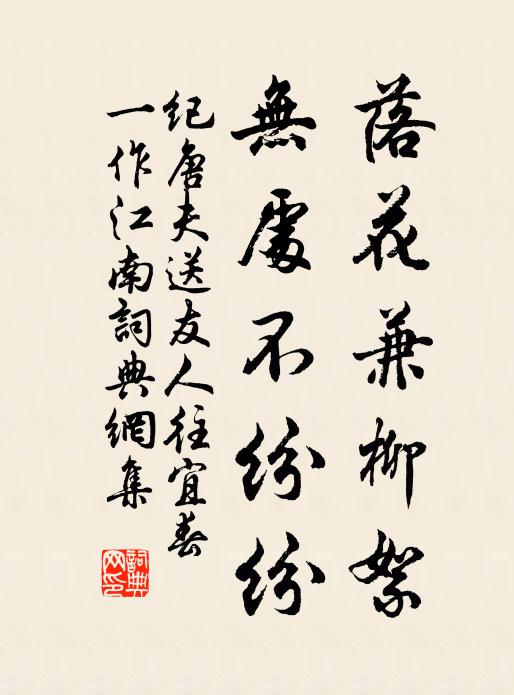 落花兼柳絮
無處不紛紛
紀唐夫送友人往宜春
一作江南詞典網集
詞典
网印